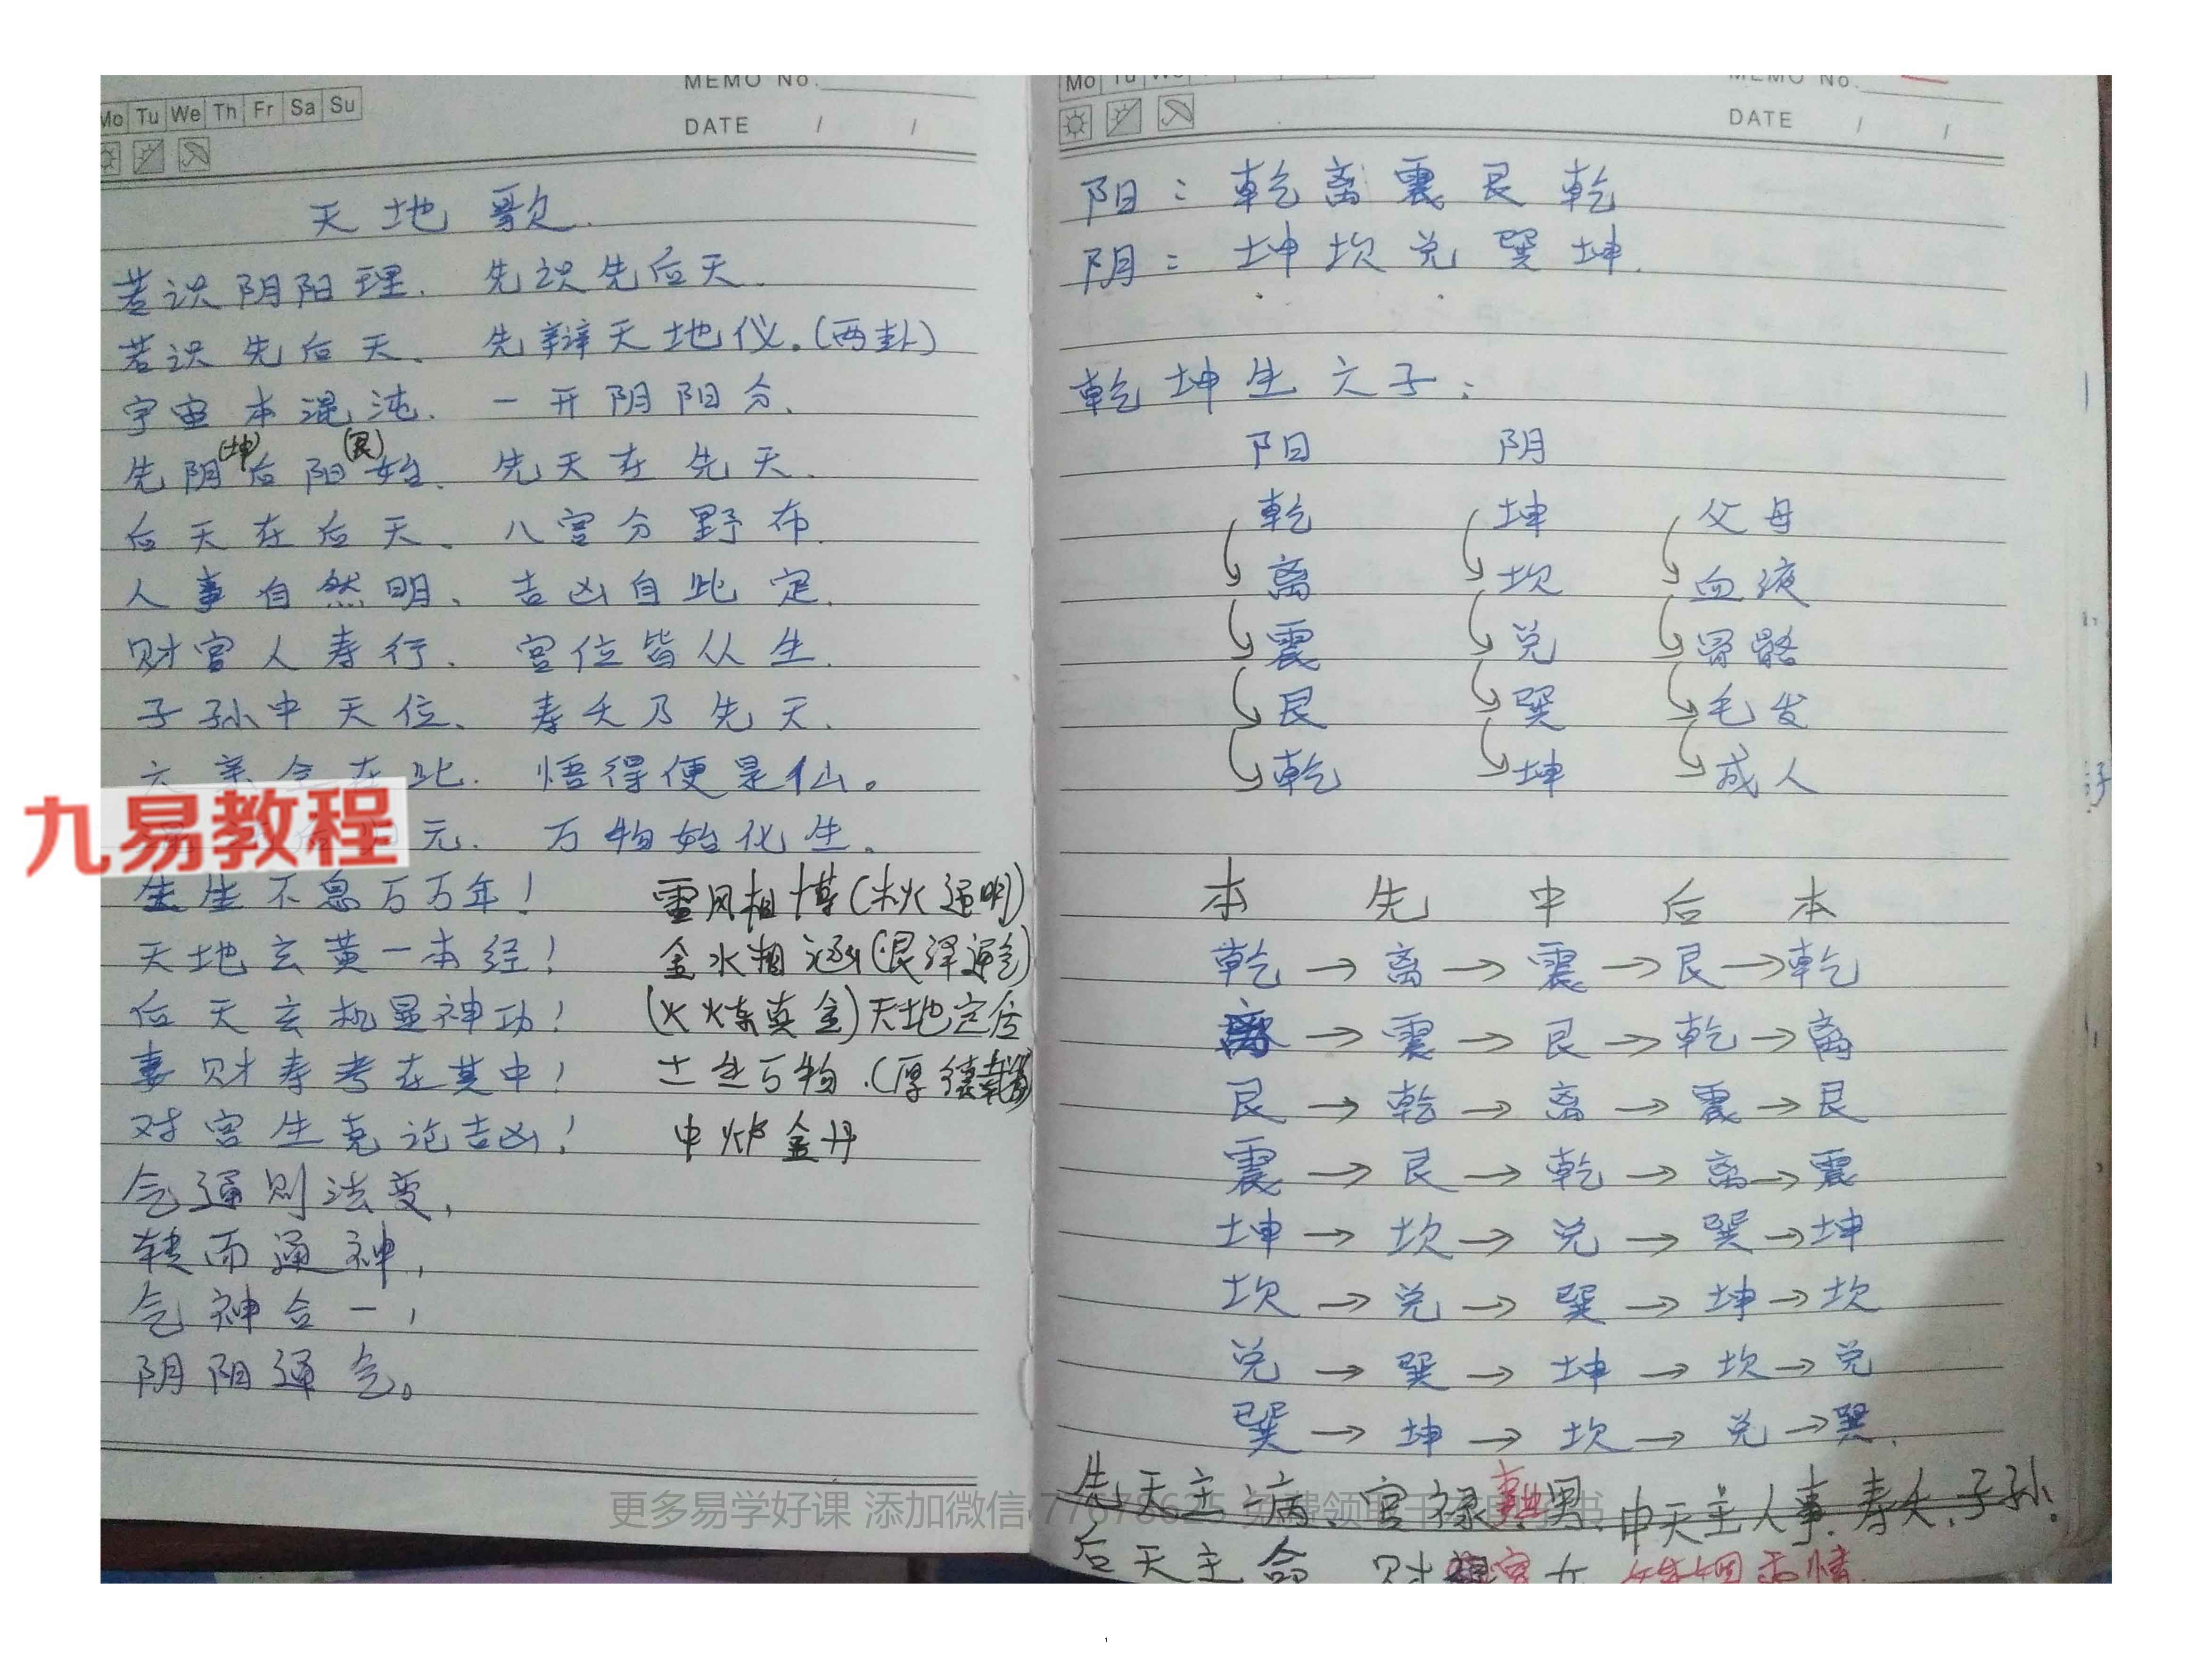 Mo Tu We Th Fr Sa Su
MEMO No.
DATE / /
天地歌.
若识阴阳理. 先识先后天.
若识先后天、 先辩天地仪。(两卦)
宇宙本混沌. 一开阴阳分、
(坤) (艮)
先阴后阳始、 先天在先天.
后天在后天、 八宫分野布.
人事自然明、 吉凶自此定.
财官人寿行. 宫位皆从生.
子孙中天位、 寿夭乃先天.
在此. 悟得便是仙。
九易教程
元. 万物始化生。
生生不息万万年! 雷风相博(木火通明)
天地玄黄一本经! 金水相涵(艮泽通气)
后天玄机显神功! (火炼真金)天地定位
妻财寿考在其中! 土生万物.(厚德载物)
对宫生克论吉凶! 中炉金丹
气通则法变,
转而通神,
气神合一,
阴阳通气。
Mo Tu We
MEMO No.
DATE / /
阳: 乾离震艮乾
阴: 坤坎兑巽坤.
乾坤生六子:
阳 阴
乾 坤 父母
离 坎 血液
震 兑 骨骼
艮 巽 毛发
乾 坤 成人
本 先 中 后 本
乾→离→震→艮→乾
离→震→艮→乾→离
艮→乾→离→震→艮
震→艮→乾→离→震
坤→坎→兑→巽→坤
坎→兑→巽→坤→坎
兑→巽→坤→坎→兑
巽→坤→坎→兑→巽.
先天主病、官禄 男. 中天主人事、寿夭、子孙.
更多易学好课 添加微信
后天主命 财 女 婚姻 情.